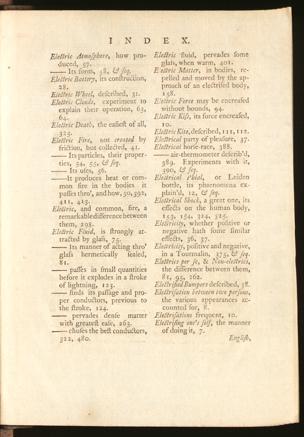 INDEX.
Electric Atmosphere, how pro-
duced, 57.
—— Its form, 58, & seq.
Electric Battery, its construction,
28.
Electric Wheel, described, 31.
Electric Clouds, experiment to
explain their operation, 63,
64.
Electric Death, the easiest of all,
325.
Electric Fire, not created by
friction, but collected, 41.
—— Its particles, their proper-
ties, 54, 55, & seq.
—— Its uses, 56.
——It produces heat or com-
mon fire in the bodies it
passes thro', and how, 50,
411, 413.
Electric, and common, fire, a
remarkable difference between
them, 298.
Electric Fluid, is strongly at-
tracted by glass, 75.
—— Its manner of acting thro'
glass hermetically sealed,
81.
—— passes in small quantities
before it explodes in a stroke
of lightning, 123.
—— finds its passage and pro-
per conductors, previous to
the stroke, 124.
—— pervades dense matter
with greatest ease, 263.
—— chuses the best conductors,
322, 480.
Electric fluid, pervades some
glass, when warm, 401.
Electric Matter, in bodies, re-
pelled and moved by the ap-
proach of an electrified body,
158.
Electric Force may be encreased
without bounds, 94.
Electric Kiss, its force encreased,
10.
Electric Kite, described, 111, 112.
Electrical party of pleasure, 37.
Electrical horse-race, 388.
—— air-thermometer describ'd,
389. Experiments with it,
390, & seq.
Electrical Phial, or Leiden
bottle, its phænomena ex-
plain'd, 12, & seq.
Electrical Shock, a great one, its
effects on the human body,
153, 154, 324, 325.
Electricity, whether positive or
negative hath some similar
effects, 36, 37.
Electricity, positive and negative,
in a Tourmalin, 375, & seq.
Electrics per se, & Non-electrics,
the difference between them,
81, 95, 262.
Electrified Bumpers described, 38.
Electrisation between two persons,
the various appearances ac-
counted for, 8.
Electrisations frequent, 10.
Electrising one's self, the manner
of doing it, 7.
English,